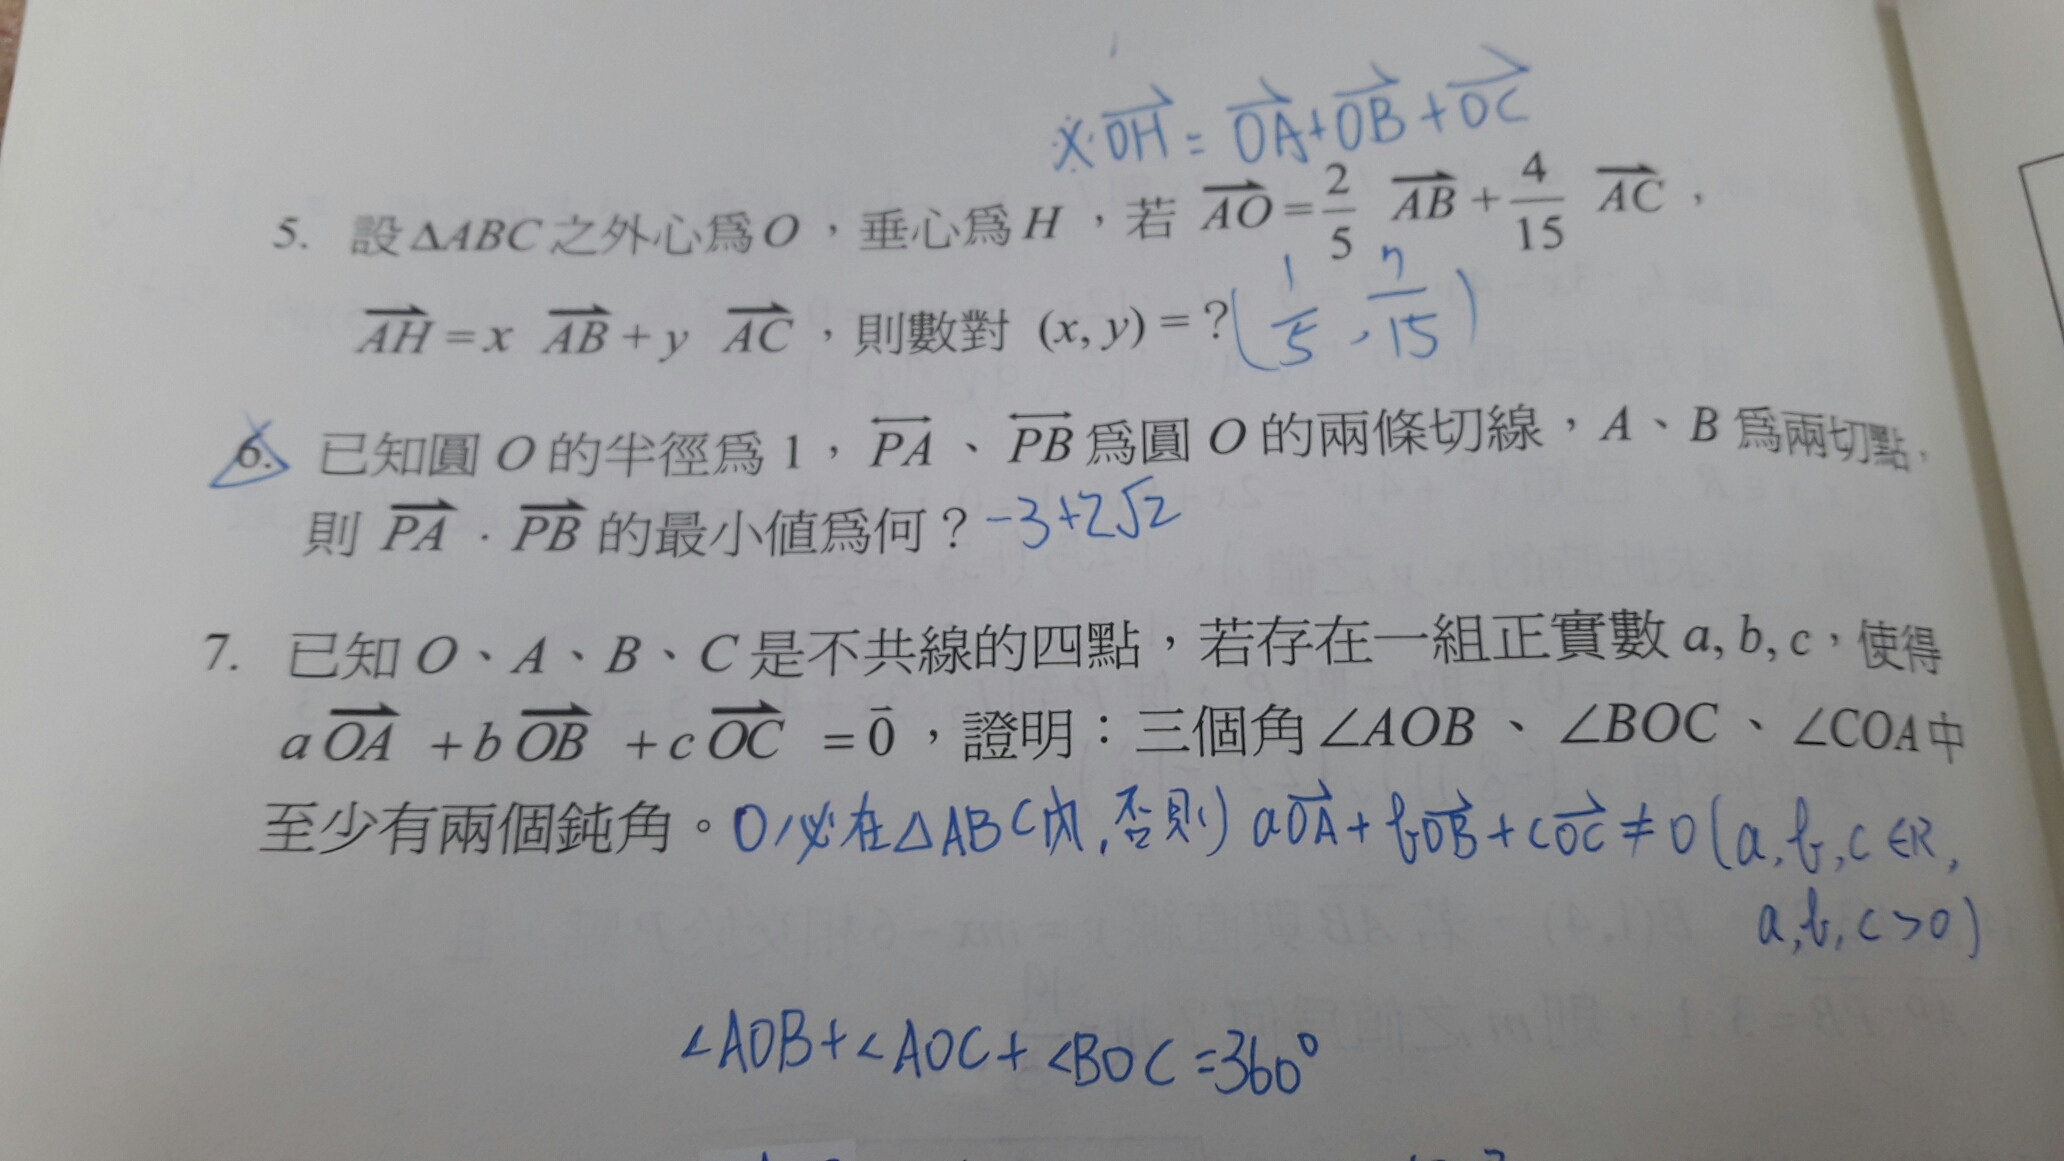 ※ OH = OA + OB + OC
5. 設 ΔABC 之外心爲 O，垂心爲 H，若 AO = 2/5 AB + 4/15 AC，
AH = x AB + y AC，則數對 (x, y) = ? (1/5, 7/15)
6. 已知圓 O 的半徑爲 1，PA、PB 爲圓 O 的兩條切線，A、B 爲兩切點，
則 PA · PB 的最小值爲何？ -3+2√2
7. 已知 O、A、B、C 是不共線的四點，若存在一組正實數 a, b, c，使得
a OA + b OB + c OC = 0，證明：三個角 ∠AOB、∠BOC、∠COA 中
至少有兩個鈍角。O必在△ABC內,否則 aOA + bOB + cOC ≠ 0 (a, b, c ∈ R,
a, b, c > 0)
∠AOB + ∠AOC + ∠BOC = 360°